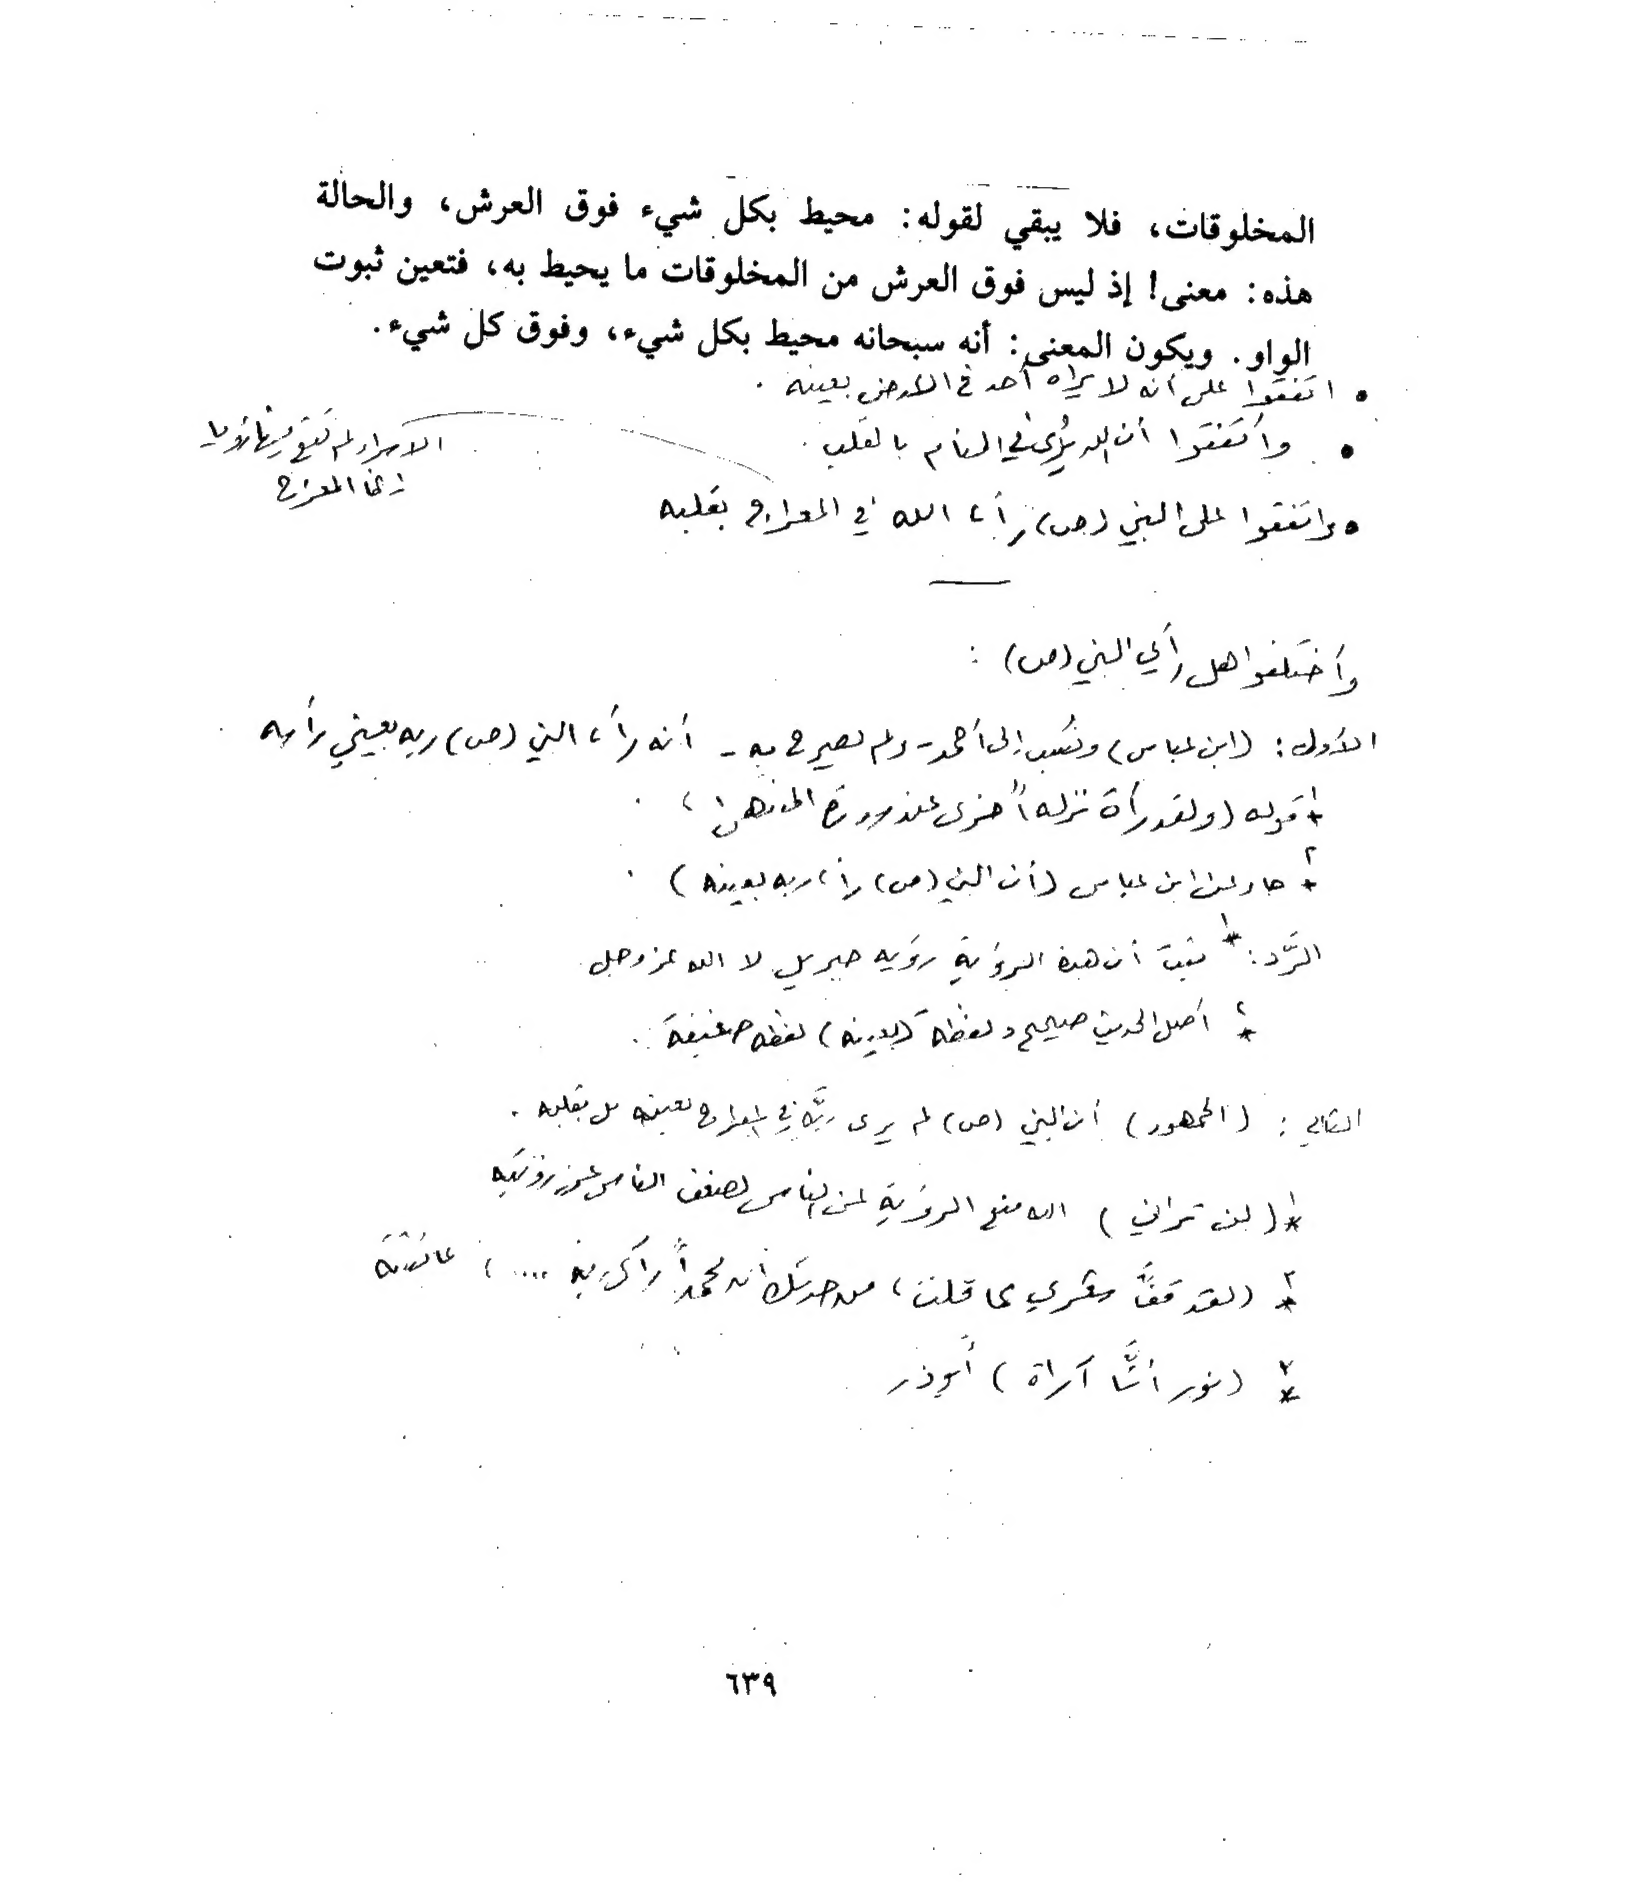 المخلوقات، فلا يبقي لقوله: محيط بكل شيء فوق العرش، والحالة
هذه: معنى! إذ ليس فوق العرش من المخلوقات ما يحيط به، فتعين ثبوت
الواو. ويكون المعنى: أنه سبحانه محيط بكل شيء، وفوق كل شيء.
• اتفقوا على أنه لا يراه أحد في الأرض بعينه.
• واتفقوا أن الله يُرى في المنام بالقلب.
الاسراء لم تقع فيها رؤيا
إنما المعراج
• واتفقوا على النبي (ص) رأى الله في المعراج بقلبه
وأختلفوا هل رأى النبي (ص) :
الأول: (ابن عباس) ونسب إلى أحمد - ولم يصرح به - أنه رأى النبي (ص) ربه بعيني رأسه
١* قوله (ولقد رآه نزلة أخرى عند سدرة المنتهى)
٢* جاء عن ابن عباس (أن النبي (ص) رأى ربه بعينه)
الرَّد: ١* ثبت أن هذه الرؤية رؤية جبريل لا الله عز وجل
٢* أصل الحديث صحيح ولفظة (بعينه) لفظه ضعيفة.
الثاني: (الجمهور) أن النبي (ص) لم يرى ربَّه في المعراج بعينه بل بقلبه.
١* (لن تراني) الله منع الرؤية عن الناس لضعف الناس عن رؤيته
٢* (لقد قفَّ شعري مما قلت، من حدثك أن محمداً رأى ربه ....) عائشة
٣* (نور أنَّا أراه) أبوذر
٦٣٩